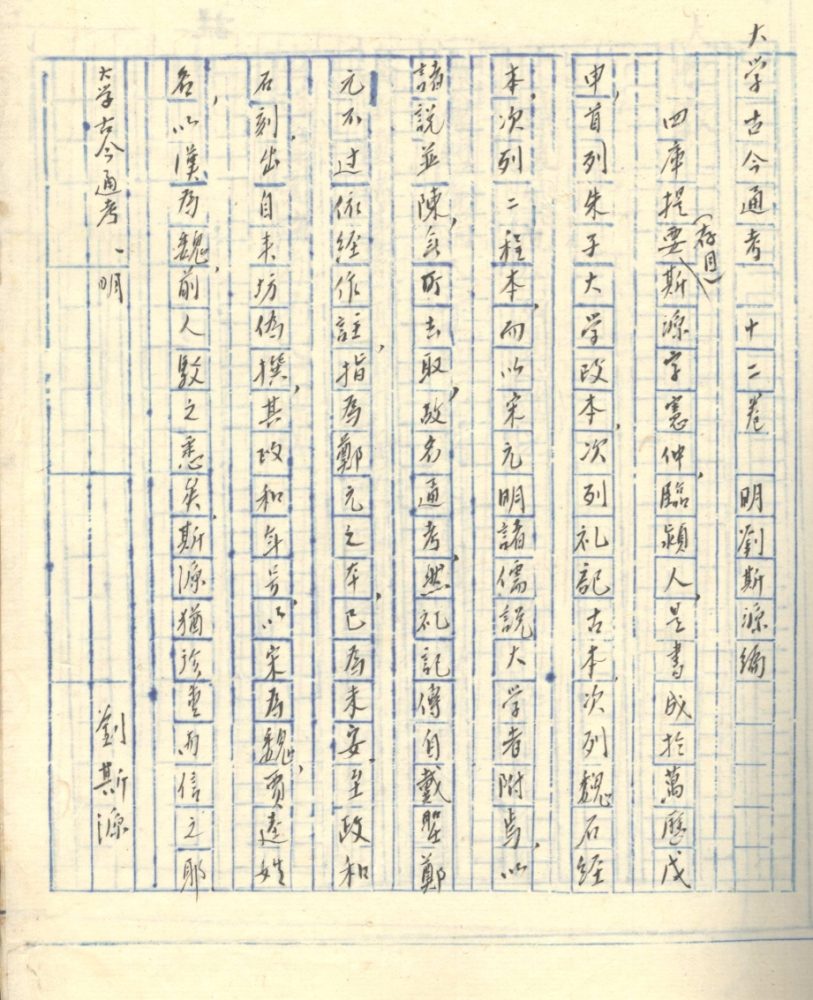 大学古今通考 十二卷 明劉斯源編
四庫提要(存目)斯源字憲仲,臨潁人,是書成於萬歷戊
申,首列朱子大学改本,次列礼記古本,次列魏石经
本,次列二程本,而以宋元明諸儒説大学者附焉,以
諸説並陳,無所去取,故名通考,然礼記傳自戴聖,鄭
元不过依经作註,指爲鄭元之本,已爲未安,至政和
石刻,出自丰坊偽撰,其政和年号,以宋爲魏,賈逵姓
名,以漢爲魏,前人駁之悉矣,斯源猶珍重而信之耶
大学古今通考、明 劉斯源